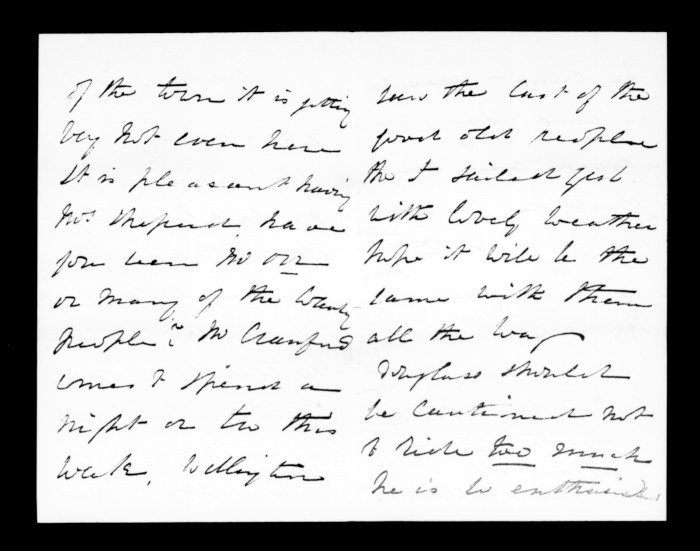 of the town it is getting
very hot even here
It is pleasant having
Mrs Shepherd, have
you seen Mr Orr
or many of the County
People? Mr Cranford
comes to spend a
night or two this
week, Wellington
the last of the
good old people
the I sailed yest
with lovely weather
hope it will be the
same with them
all the way
Douglass should
be cautioned not
to ride too much
he is so